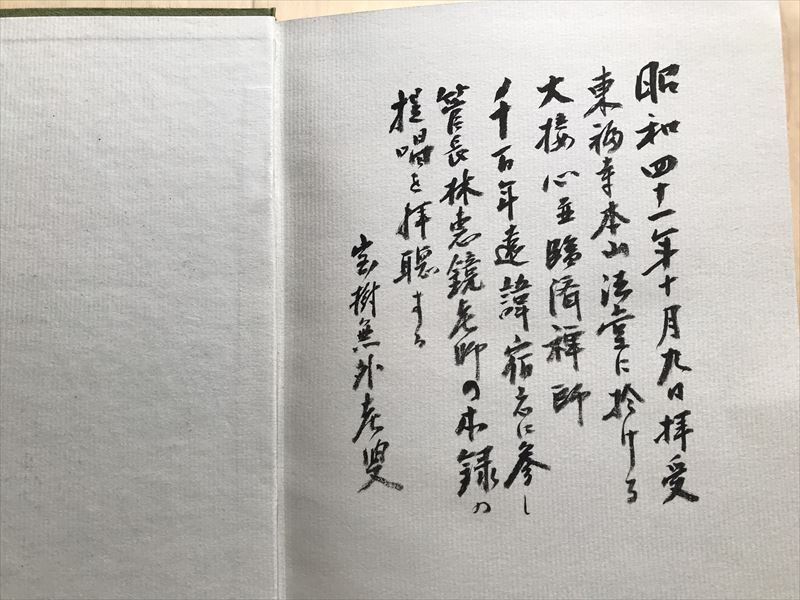 昭和四十一年十月九日拝受
東福寺本山法堂に於ける
大接心並臨済禅師
千百年遠諱宿忌に参し
管長林恵鏡老師の本録の
提唱を拝聴する
樹無外老叟